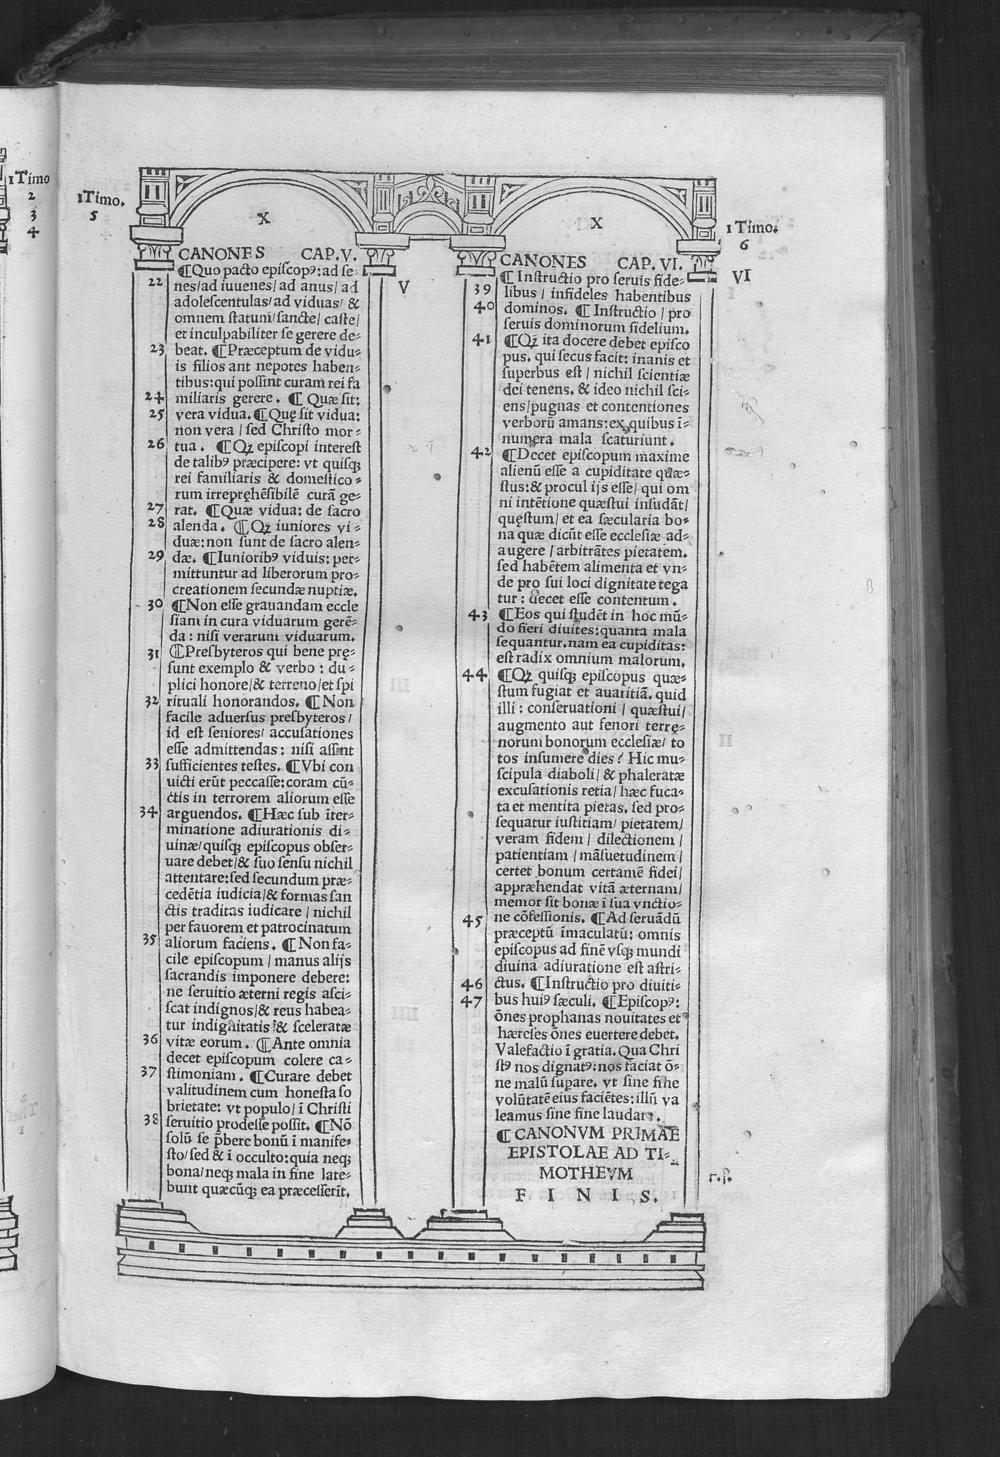 1Timo
2
3
4
1Timo.
5
X
V
CANONES CAP.V.
¶Quo pacto episcopꝰ:ad se⸗
22 nes/ad iuuenes/ad anus/ad
adolescentulas/ad viduas/ &
omnem statum/sancte/ caste/
et inculpabiliter se gerere de⸗
23 beat. ¶Præceptum de vidu⸗
is filios aut nepotes haben⸗
tibus:qui possint curam rei fa
24 miliaris gerere. ¶ Quæ sit:
25 vera vidua. ¶Quę sit vidua:
non vera / sed Christo mor⸗
26 tua . ¶Qꝫ episcopi interest
de talibꝰ præcipere: vt quisqꝫ
rei familiaris & domestico⸗
rum irrepręhēsibilē curā ge⸗
27 rat. ¶Quæ vidua: de sacro
28 alenda. ¶Qꝫ iuniores vi⸗
duæ:non sunt de sacro alen⸗
29 dæ. ¶Iunioribꝰ viduis: per⸗
mittuntur ad liberorum pro⸗
creationem secundæ nuptiæ.
30 ¶Non esse grauandam eccle
siam in cura viduarum gerē⸗
da : nisi verarum viduarum.
31 ¶Presbyteros qui bene prę⸗
sunt exemplo & verbo : du⸗
plici honore/& terreno/et spi
32 rituali honorandos. ¶Non
facile aduersus presbyteros/
id est seniores/ accusationes
esse admittendas: nisi assint
33 sufficientes testes. ¶Vbi con
uicti erūt peccasse:coram cū⸗
ctis in terrorem aliorum esse
34 arguendos. ¶Hæc sub īter⸗
minatione adiurationis di⸗
uinæ/quisqꝫ episcopus obser⸗
uare debet/& suo sensu nichil
attentare:sed secundum præ⸗
cedētia iudicia/& formas san
ctis traditas iudicare / nichil
per fauorem et patrocinatum
35 aliorum faciens. ¶Non fa⸗
cile episcopum / manus alijs
sacrandis imponere debere:
ne seruitio æterni regis asci⸗
scat indignos/& reus habea⸗
tur indignitatis & sceleratæ
36 vitæ eorum. ¶Ante omnia
decet episcopum colere ca⸗
37 stimoniam. ¶Curare debet
valitudinem cum honesta so
brietate: vt populo/ī Christi
38 seruitio prodesse possit. ¶Nō
solū se p̄bere bonū ī manife⸗
sto/sed & ī occulto:quia neqꝫ
bona/neqꝫ mala in fine late⸗
bunt quæcūqꝫ ea præcesserīt.
X
1 Timo.
6
VI
CANONES CAP. VI.
¶ Instructio pro seruis fide⸗
39 libus / infideles habentibus
40 dominos. ¶ Instructio / pro
seruis dominorum fidelium.
41 ¶Qꝫ ita docere debet episco
pus. qui secus facit: inanis et
superbus est / nichil scientiæ
dei tenens. & ideo nichil sci⸗
ens/pugnas et contentiones
verborū amans:ex quibus ī⸗
numera mala scaturiunt.
42 ¶Decet episcopum maxime
alienū esse a cupiditate quæ⸗
stus:& procul ijs esse/ qui om
ni intētione quæstui insudāt/
quęstum/ et ea sæcularia bo⸗
na quæ dicūt esse ecclesiæ ad⸗
augere / arbitrātes pietatem.
sed habētem alimenta et vn⸗
de pro sui loci dignitate tega
tur : decet esse contentum.
43 ¶Eos qui studēt in hoc mū⸗
do fieri diuites:quanta mala
sequantur.nam ea cupiditas:
est radix omnium malorum.
44 ¶Qꝫ quisqꝫ episcopus quæ⸗
stum fugiat et auaritiā. quid
illi : conseruationi / quæstui/
augmento aut fenori terrę⸗
norum bonorum ecclesiæ/ to
tos insumere dies? Hic mu⸗
scipula diaboli/ & phaleratæ
excusationis retia/ hæc fuca⸗
ta et mentita pietas. sed pro⸗
sequatur iustitiam/ pietatem/
veram fidem / dilectionem /
patientiam / māsuetudinem /
certet bonum certamē fidei/
appræhendat vitā æternam/
memor sit bonæ ī sua vnctio⸗
45 ne cōfessionis. ¶Ad seruādū
præceptū īmaculatū: omnis
episcopus ad finē vsqꝫ mundi
diuina adiuratione est astri⸗
46 ctus. ¶Instructio pro diuiti⸗
47 bus huiꝰ sæculi. ¶Episcopꝰ:
ōnes prophanas nouitates et
hæreses ōnes euertere debet.
Valefactio ī gratia. Qua Chri
stꝰ nos dignatꝰ:nos faciat ō⸗
ne malū supare. vt sine fine
volūtatē eius faciētes:illū va
leamus sine fine laudare.
¶ CANONVM PRIMAE
EPISTOLAE AD TI⸗
MOTHEVM
F I N I S.